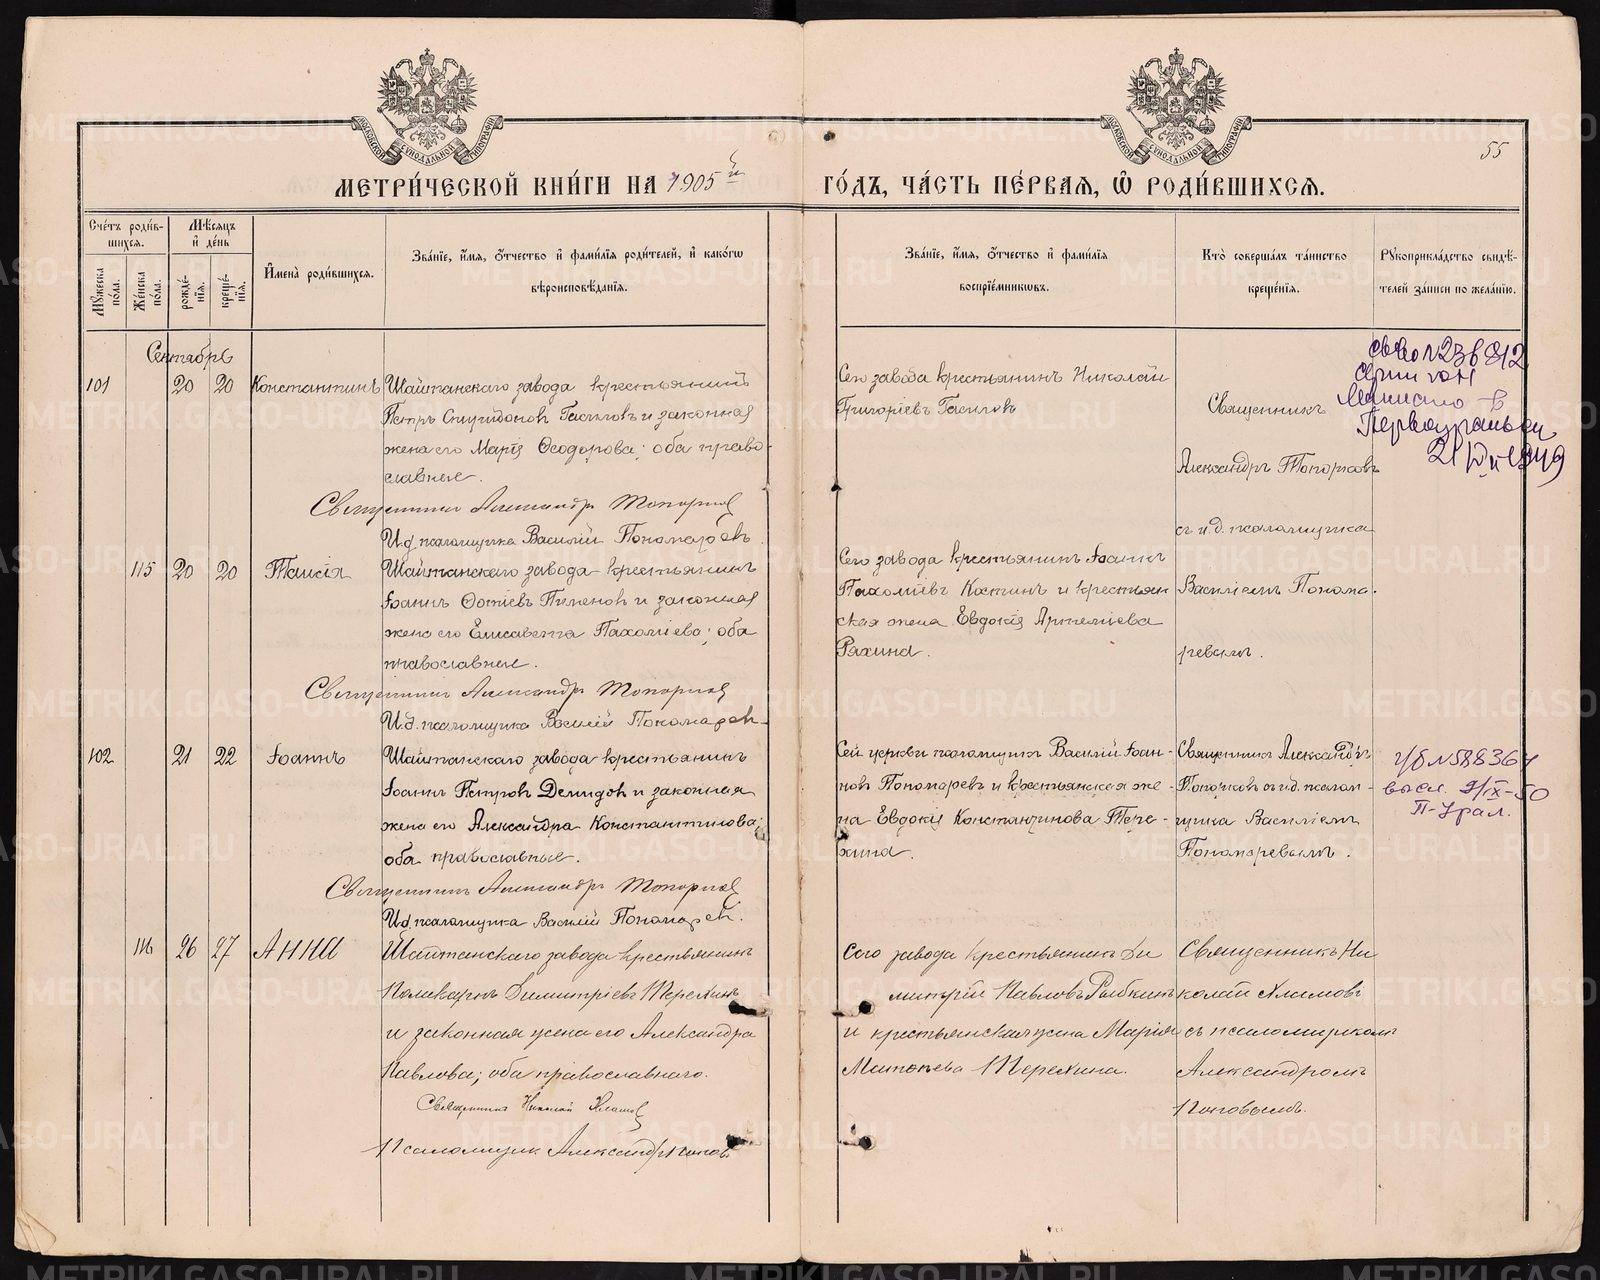 МЕТРИ́ЧЕСКОЙ КНИ́ГИ НА 1905й
ГО́ДЪ, ЧА́СТЬ ПЕ́РВАЯ, Ѡ҆ РОДИ́ВШИХСЯ.
55
Сче́тъ роди́в-
шихся.
Мѣ́сяцъ
и҆ де́нь
Мꙋжеска по́ла.
Же́нска по́ла.
рожде́-
нїя.
креще́-
нїя.
И҆мена̀ роди́вшихся.
Зва́нїе, и҆́мя, ѻ҆́тчество и҆ фами́лїя роди́телей, и҆ како́гѡ
вѣроисповѣ́данїя.
Зва́нїе, и҆́мя, ѻ҆́тчество и҆ фами́лїя
воспрїе́мникѡвъ.
Кто̀ соверша́лъ та́инство
креще́нїя.
Рꙋкоприкла́дство свидѣ́-
телей за́писи по жела́нїю.
Сентябрь
101 20 20 Константинъ
Шайтанскаго завода крестьянинъ
Петръ Спиридоновъ Гасиловъ и законная
жена его Марія Ѳеодорова; оба право-
славные.
Священникъ Александръ Топорковъ
И.д. псаломщика Василій Пономаревъ
Сего завода крестьянинъ Николай
Григоріевъ Гасиловъ
Священникъ
Александръ Топорковъ
съ и.д. псаломщика
Василіемъ Понома-
ревымъ.
21 1949
115 20 20 Таисія
Шайтанскаго завода крестьянинъ
Іоаннъ Фотіевъ Пименовъ и законная
жена его Елисавета Пахоміева; оба
православные.
Священникъ Александръ Топорковъ
И.д. псаломщика Василій Пономаревъ
Сего завода крестьянинъ Іоаннъ
Пахоміевъ Костинъ и крестьян-
ская жена Евдокія Артеміева
Ряхина.
102 21 22 Іоаннъ
Шайтанскаго завода крестьянинъ
Іоаннъ Петровъ Демидовъ и законная
жена его Александра Константинова;
оба православные.
Священникъ Александръ Топорковъ
И.д. псаломщика Василій Пономаревъ.
Сей церкви псаломщикъ Василій Іоан-
новъ Пономаревъ и крестьянская же-
на Евдокія Константинова Тере-
хина.
Священникъ Александръ
Топорковъ съ и.д. псалом-
щика Василіемъ
Пономаревымъ.
№588364
высл. 2/IX-50
П-Урал.
116 26 27 АННА
Шайтанскаго завода крестьянинъ
Поликарпъ Димитріевъ Терехинъ
и законная жена его Александра
Павлова; оба православнаго.
Священникъ Николай Хламовъ
Псаломщик Александръ Поповъ
Сего завода крестьянинъ Ди
митрій Павловъ Рыбкинъ
и крестьянская жена Марія
Матѳеева Терехина.
Священникъ Ни
колай Хламовъ
съ псаломщикомъ
Александромъ
Поповымъ.
METRIKI.GASO-URAL.RU